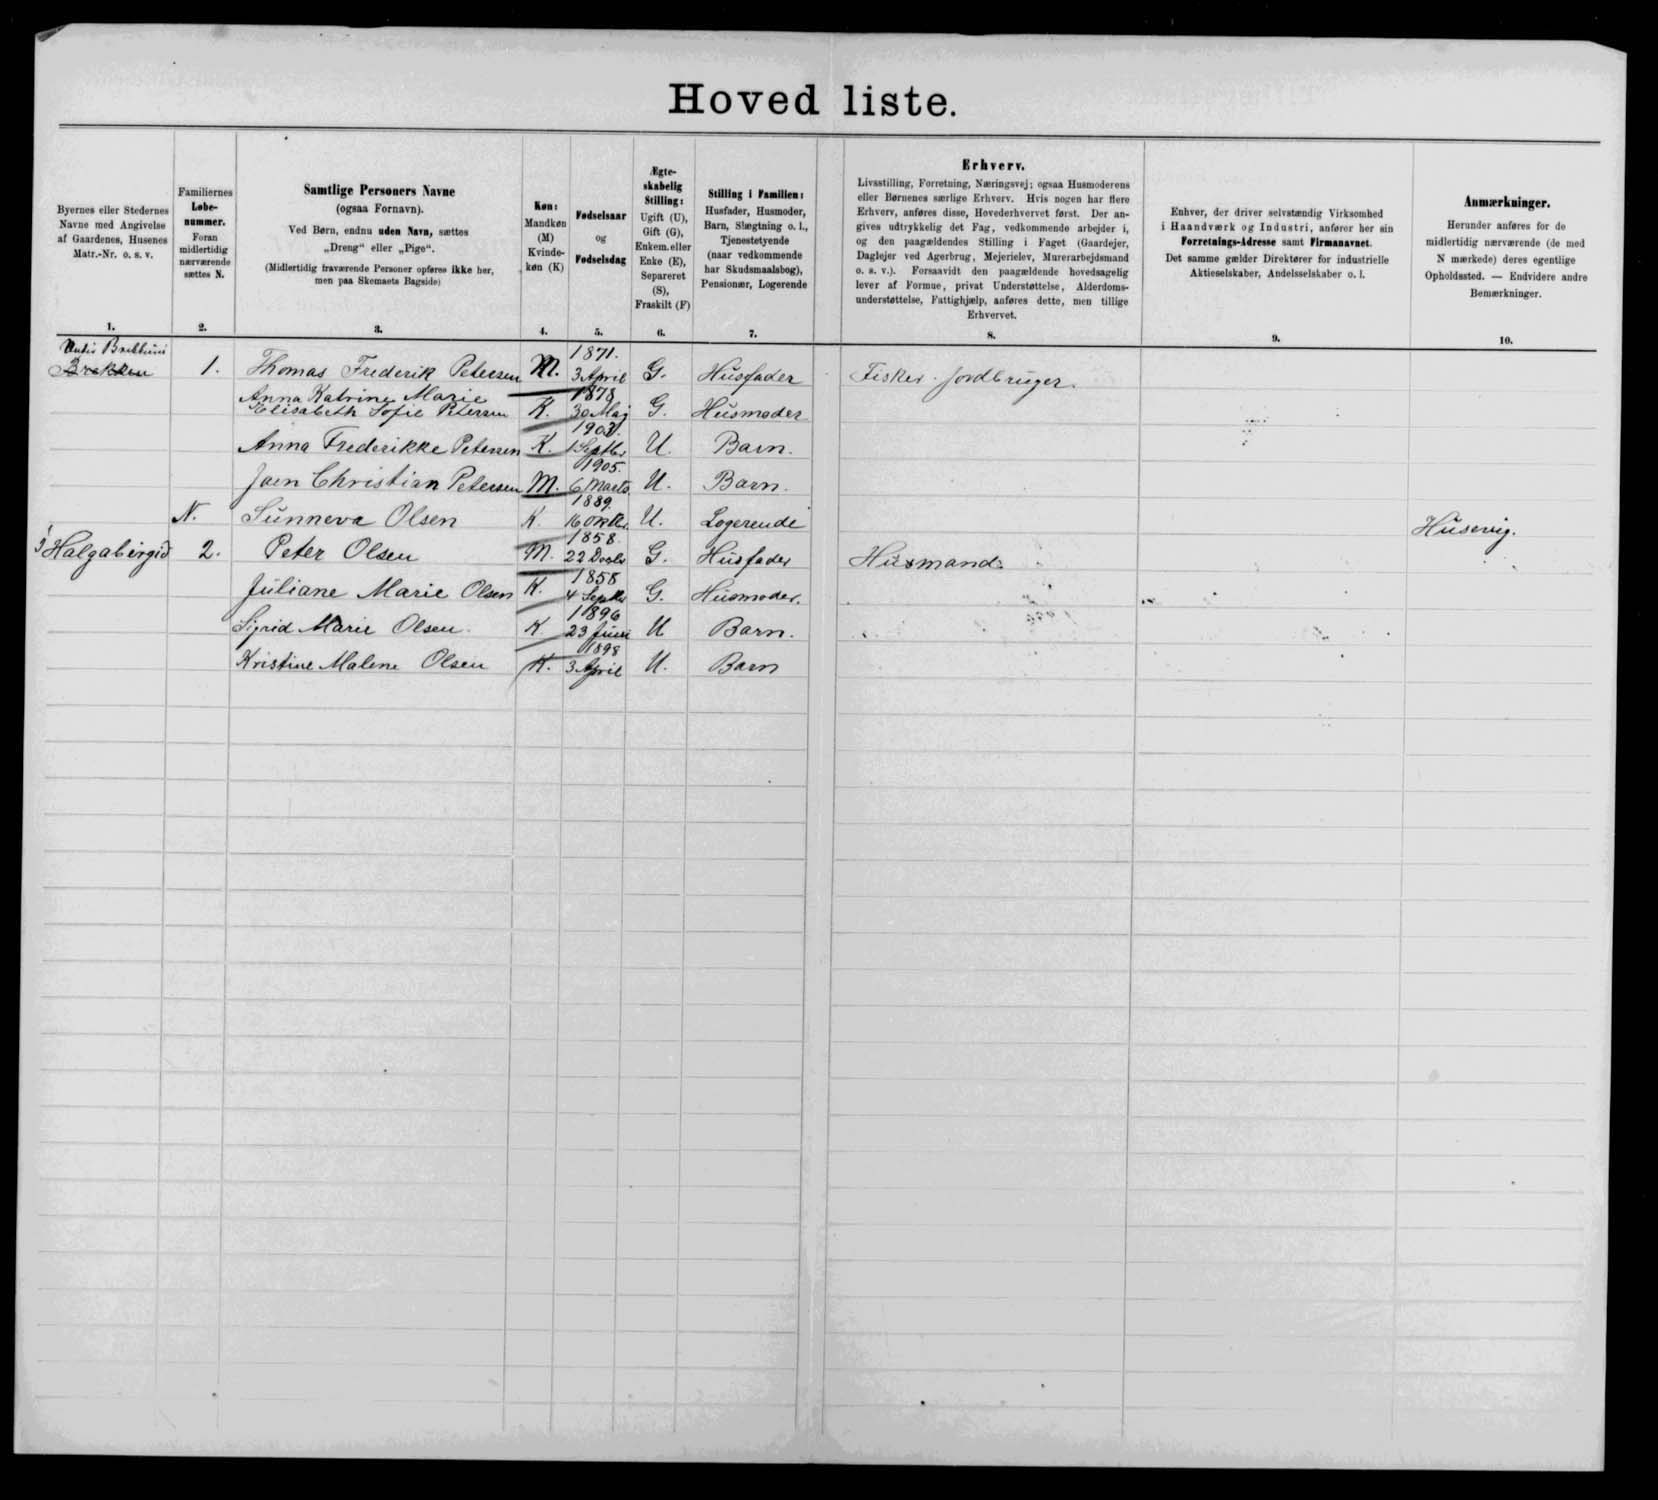 Hoved liste.
Byernes eller Stedernes
Navne med Angivelse
af Gaardenes, Husenes
Matr.-Nr. o. s. v.
1.
Familiernes
Løbe-
nummer.
Foran
midlertidig
nærværende
sættes N.
2.
Samtlige Personers Navne
(ogsaa Fornavn).
Ved Børn, endnu uden Navn, sættes
„Dreng“ eller „Pige“.
(Midlertidig fraværende Personer opføres ikke her,
men paa Skemaets Bagside)
3.
Køn:
Mandkøn
(M)
Kvinde-
køn (K)
4.
Fødselsaar
og
Fødselsdag
5.
Ægte-
skabelig
Stilling:
Ugift (U),
Gift (G),
Enkem. eller
Enke (E),
Separeret
(S),
Fraskilt (F)
6.
Stilling i Familien:
Husfader, Husmoder,
Barn, Slægtning o. l.,
Tjenestetyende
(naar vedkommende
har Skudsmaalsbog),
Pensionær, Logerende
7.
Erhverv.
Livsstilling, Forretning, Næringsvej; ogsaa Husmoderens
eller Børnenes særlige Erhverv. Hvis nogen har flere
Erhverv, anføres disse, Hovederhvervet først. Der an-
gives udtrykkelig det Fag, vedkommende arbejder i,
og den paagældendes Stilling i Faget (Gaardejer,
Daglejer ved Agerbrug, Mejerielev, Murerarbejdsmand
o. s. v.). Forsaavidt den paagældende hovedsagelig
lever af Formue, privat Understøttelse, Alderdoms-
understøttelse, Fattighjælp, anføres dette, men tillige
Erhvervet.
8.
Enhver, der driver selvstændig Virksomhed
i Haandværk og Industri, anfører her sin
Forretnings-Adresse samt Firmanavnet.
Det samme gælder Direktører for industrielle
Aktieselskaber, Andelsselskaber o. l.
9.
Anmærkninger.
Herunder anføres for de
midlertidig nærværende (de med
N mærkede) deres egentlige
Opholdssted. — Endvidere andre
Bemærkninger.
10.
Brekken 1. Thomas Frederik Petersen M. 1871. 3 April G. Husfader Fisker. Jordbruger.
Anna Katrine Marie
Elisabeth Sofie Petersen K. 1878 30 Maj G. Husmoder
Anna Frederikke Petersen K. 1903. 1 Septbr U. Barn.
Joen Christian Petersen M. 1905. 6 Marts U. Barn.
N. Sunneva Olsen K. 1889. 16 Oktbr. U. Logerende Husevig.
Halgabirgid 2. Peter Olsen M. 1858. 22 G. Husfader Husmand.
Juliane Marie Olsen K. 1858 4 Septbr G. Husmoder.
Sigrid Marie Olsen. K 1896 23 Juni U Barn.
Kristine Malene Olsen K. 1898 3 April U. Barn